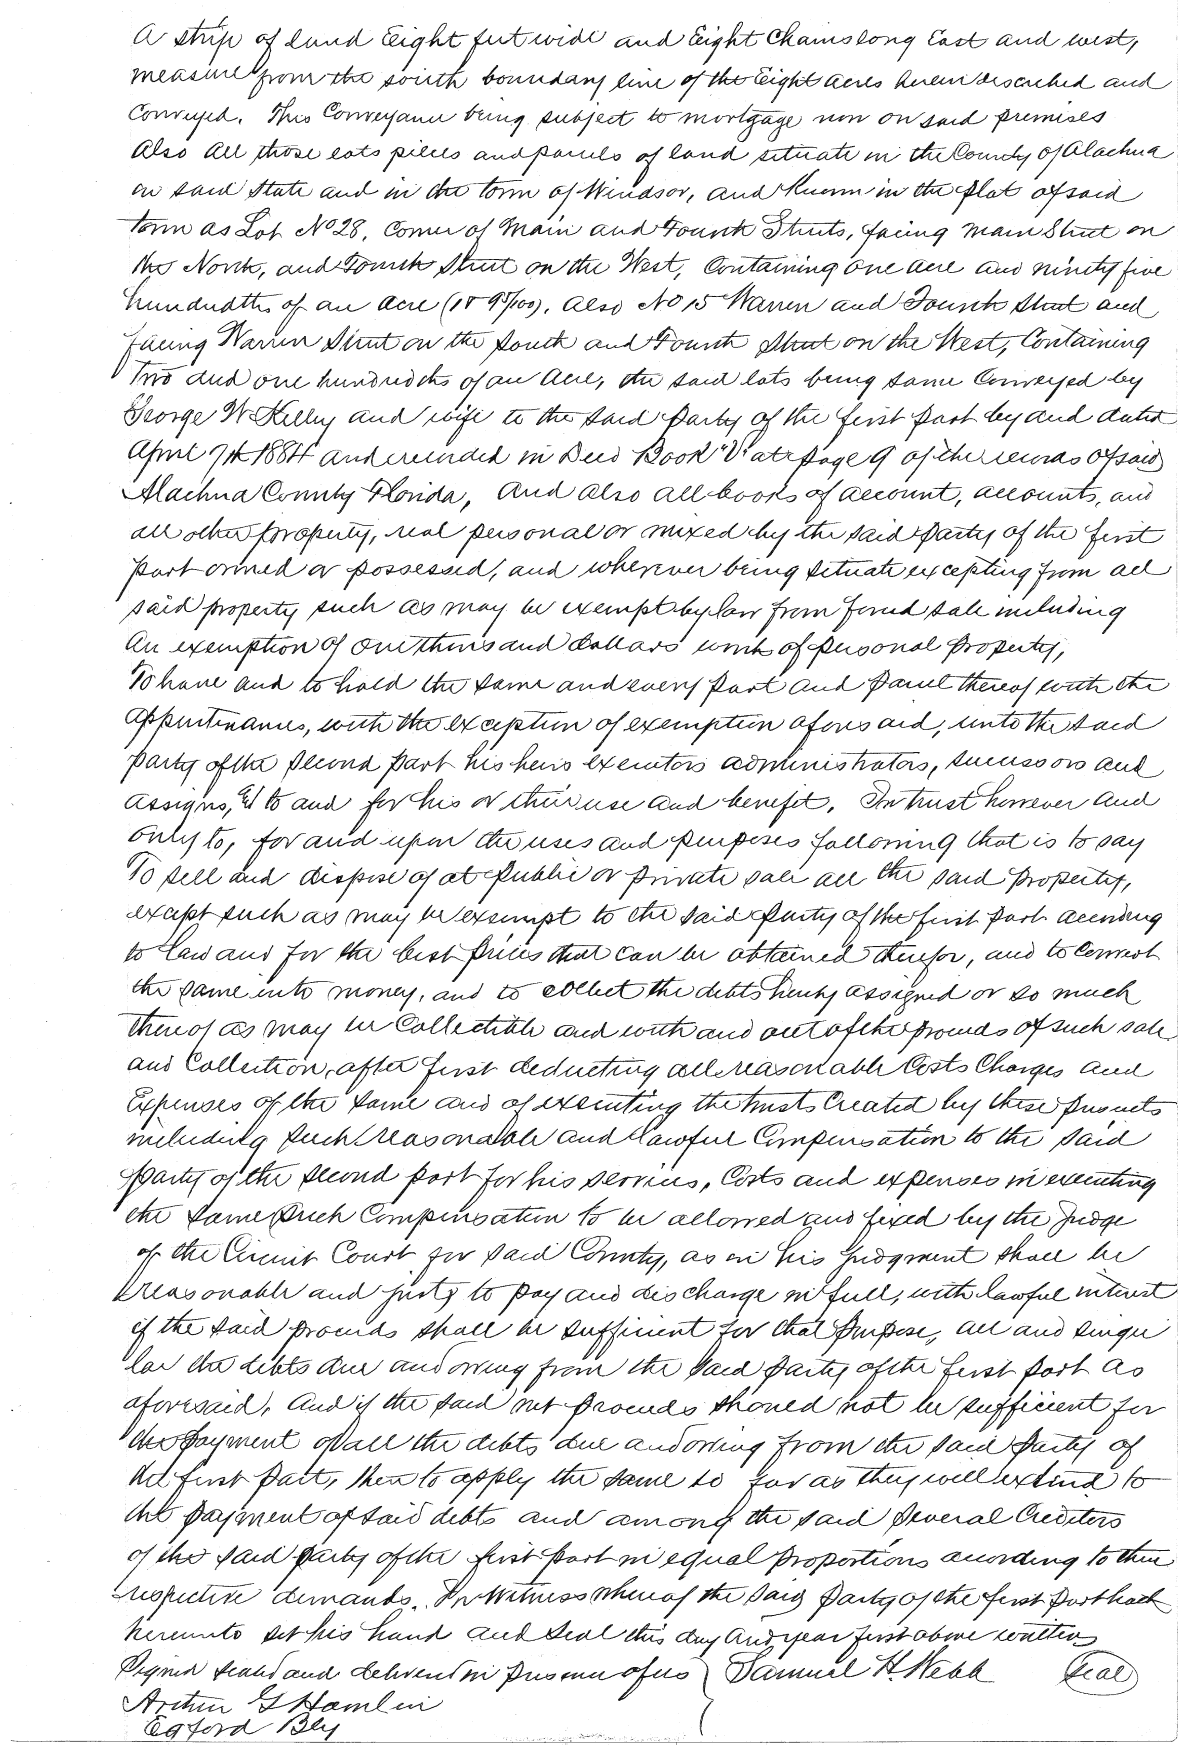 A strip of land Eight feet wide and Eight Chains long East and west,
measure from the south boundary line of the Eight acres herein described and
Conveyed. This Conveyance being subject to mortgage now on said premises
Also All those lots pieces and parcels of land situate in the County of Alachua
in said State and in the town of Windsor, and Known in the plat of said
town as Lot No 28, Corner of Main and Fourth Streets, facing Main Street on
the North, and Fourth Street on the West, Containing one acre and ninety five
hundredths of an acre (1 & 95/100). Also No 15 Warren and Fourth Street and
facing Warren Street on the South and Fourth Street on the West, Containing
Two and one hundredths of an Acre, the said lots being same Conveyed by
George W Kelley and wife to the said Party of the first Part by and dated
April 7th 1884 and recorded in Deed Book "V" at page 9 of the records of said
Alachua County Florida, And also all books of account, accounts, and
all other property, real personal or mixed by the said Party of the first
Part owned or possessed, and wherever being situate excepting from all
said property such as may be exempt by law from forced sale including
An exemption of one thousand dollars worth of personal Property,
To have and to hold the same and every part and Parcel thereof with the
appurtenances, with the exception of exemption aforesaid, unto the said
party of the second part his heirs executors administrators, successors and
assigns, to and for his or their use and benefit. In trust however and
only to, for and upon the uses and purposes following that is to say
To sell and dispose of at public or private sale all the said property,
except such as may be exempt to the said Party of the first part according
to law and for the best prices that can be obtained therefor, and to Convert
the same into money, and to collect the debts hereby assigned or so much
thereof as may be Collectible and with and out of the proceeds of such sale
and Collection, after first deducting all reasonable Costs Charges and
Expenses of the same and of executing the trusts Created by these presents
including such reasonable and lawful Compensation to the said
Party of the second part for his services, Costs and expenses in executing
the same, such Compensation to be allowed and fixed by the Judge
of the Circuit Court for said County, as in his judgment shall be
reasonable and just, to pay and discharge in full, with lawful interest
if the said proceeds shall be sufficient for that purpose, all and singu
lar the debts due and owing from the said Party of the first part as
aforesaid, And if the said net proceeds should not be sufficient for
the payment of all the debts due and owing from the said Party of
the first part, then to apply the same so far as they will extend to
the payment of said debts and among the said several Crediters
of the said party of the first part in equal proportions according to their
respective demands. In Witness whereof the said Party of the first part hath
hereunto set his hand and seal this day and year first above written
Signed sealed and delivered in presence of us } Samuel H. Webb (Seal)
Arthur G Hamlin
Egford Bly